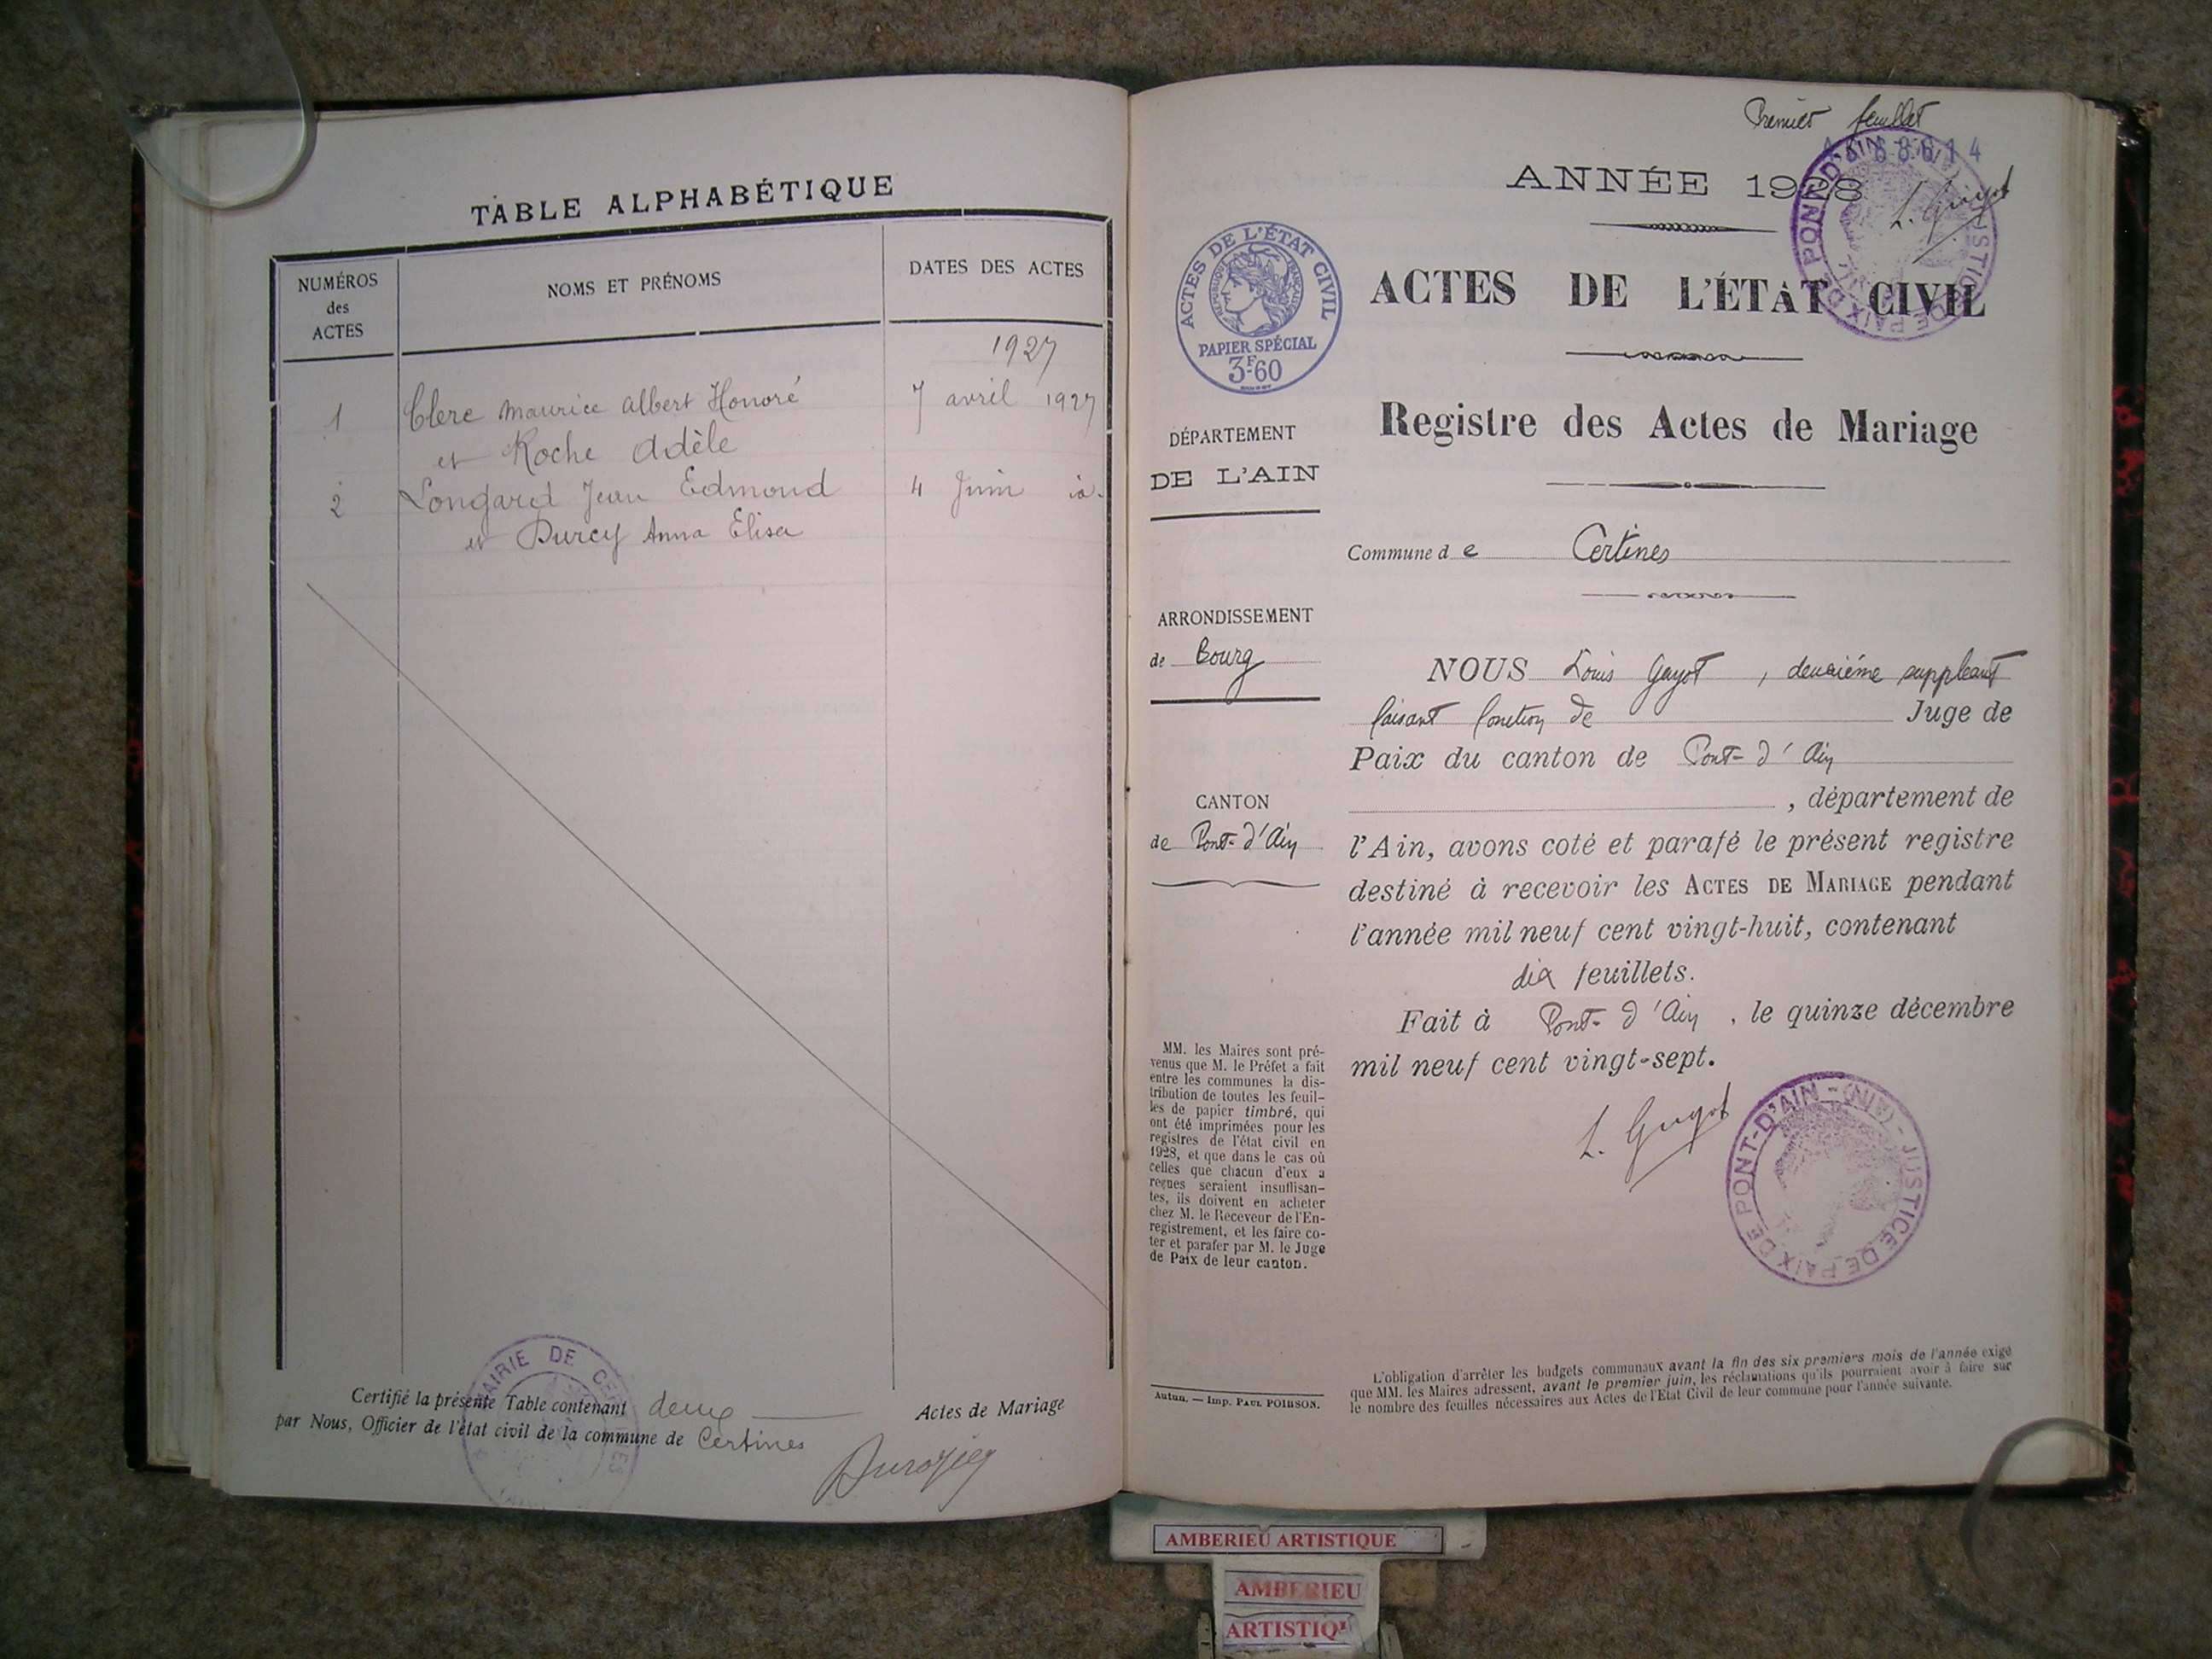 TABLE ALPHABÉTIQUE
NUMÉROS
des
ACTES
NOMS ET PRÉNOMS
DATES DES ACTES
1927
1 Clerc Maurice Albert Honoré 7 avril 1927
et Roche Adèle
2 Longard Jean Edmond 4 Juin id.
et Durcy Anna Elisa
MAIRIE DE CERTINES
Certifié la présente Table contenant deux Actes de Mariage
par Nous, Officier de l'état civil de la commune de Certines
Premier feuillet
ANNÉE 1928
L. Guyot
JUSTICE DE PAIX DE PONT-D'AIN (AIN)
ACTES DE L'ÉTAT CIVIL
RÉPUBLIQUE FRANÇAISE
PAPIER SPÉCIAL
3F60
ACTES DE L'ÉTAT CIVIL
Registre des Actes de Mariage
DÉPARTEMENT
DE L'AIN
Commune de Certines
ARRONDISSEMENT
de Bourg
CANTON
de Pont-d'Ain
NOUS Louis Guyot, deuxième suppleant
faisant fonction de Juge de
Paix du canton de Pont-d'Ain
, département de
l'Ain, avons coté et parafé le présent registre
destiné à recevoir les ACTES DE MARIAGE pendant
l'année mil neuf cent vingt-huit, contenant
dix feuillets.
Fait à Pont-d'Ain, le quinze décembre
mil neuf cent vingt-sept.
L. Guyot
JUSTICE DE PAIX DE PONT-D'AIN - (AIN) -
MM. les Maires sont pré-
venus que M. le Préfet a fait
entre les communes la dis-
tribution de toutes les feuil-
les de papier timbré, qui
ont été imprimées pour les
registres de l'état civil en
1928, et que dans le cas où
celles que chacun d'eux a
reçues seraient insuffisan-
tes, ils doivent en acheter
chez M. le Receveur de l'En-
registrement, et les faire co-
ter et parafer par M. le Juge
de Paix de leur canton.
Autun. — Imp. PAUL POIRSON.
L'obligation d'arrêter les budgets communaux avant la fin des six premiers mois de l'année exige
que MM. les Maires adressent, avant le premier juin, les réclamations qu'ils pourraient avoir à faire sur
le nombre des feuilles nécessaires aux Actes de l'Etat Civil de leur commune pour l'année suivante.
AMBERIEU ARTISTIQUE
AMBERIEU
ARTISTIQU